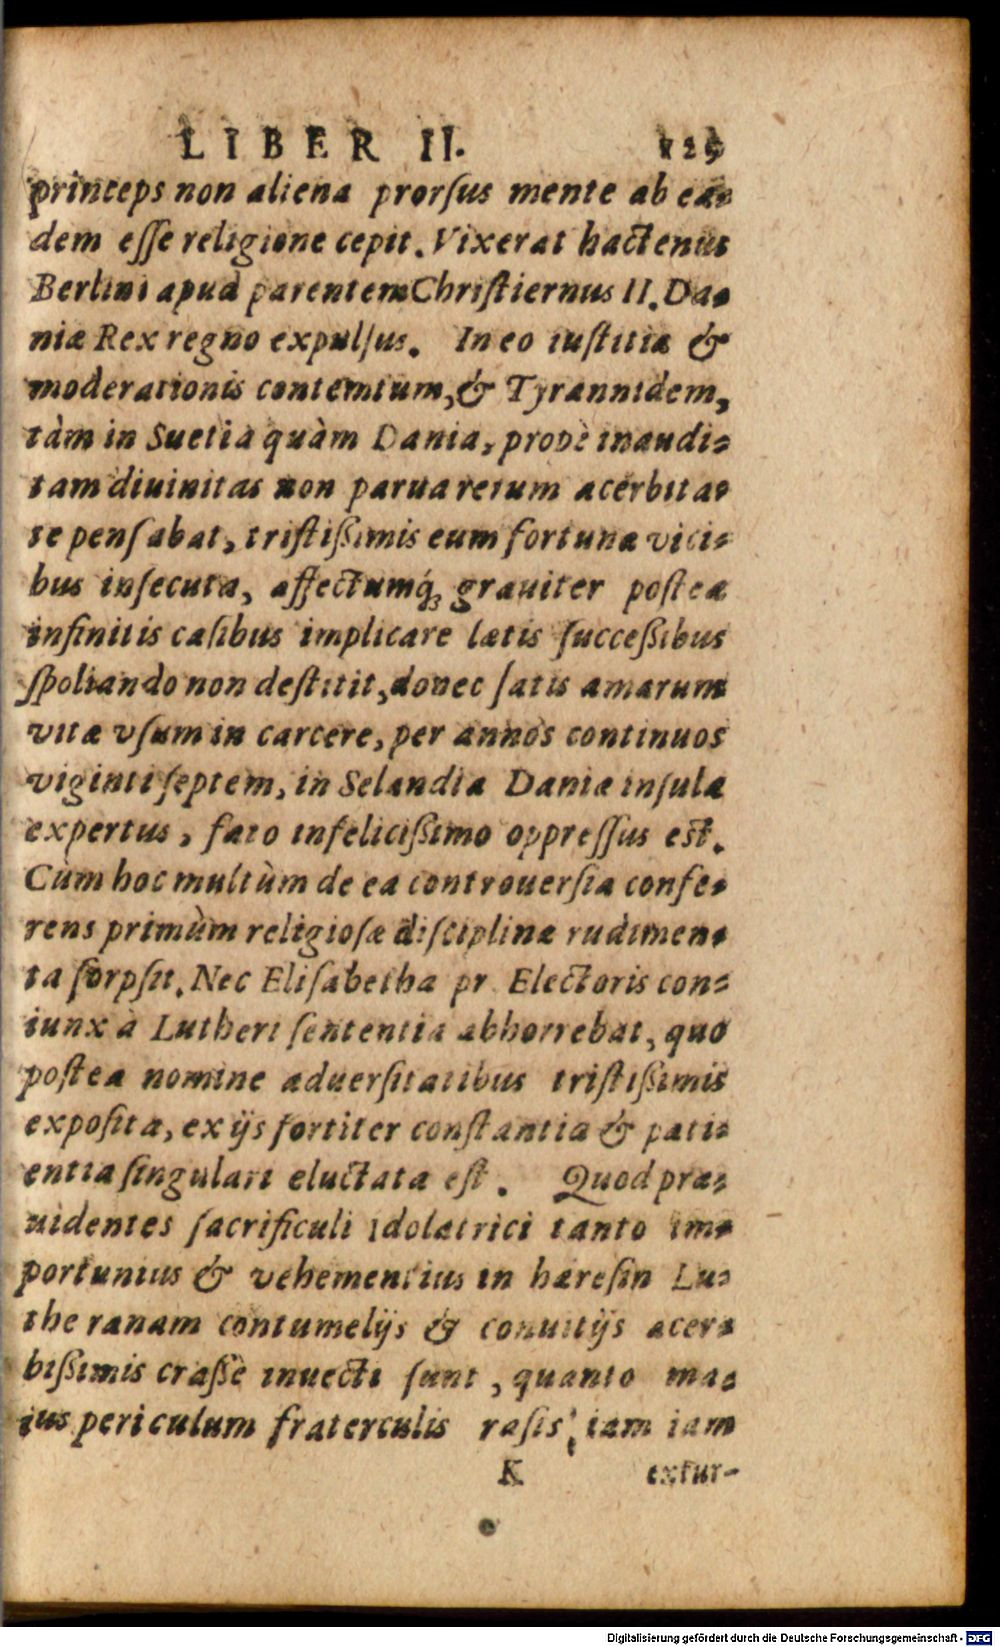 LIBER II. 129
princeps non aliena prorſus mente ab ea⸗
dem eſſe religione cepit. Vixerat hactenus
Berlini apud parentem Chriſtiernus II. Da⸗
niæ Rex regno expulſus. In eo iuſtitiæ &
moderationis contemtum, & Tyrannidem,
tàm in Suetia quàm Dania, propè inaudi⸗
tam diuinitas non parua rerum acerbita⸗
te penſabat, triſtiſsimis eum fortunæ vici⸗
bus inſecuta, affectumq́; grauiter poſtea
infinitis caſibus implicare lætis ſucceſsibus
ſpoliando non deſtitit, donec ſatis amarum
vitæ vſum in carcere, per annos continuos
viginti ſeptem, in Selandia Daniæ inſula
expertus, fato infeliciſsimo oppreſſus eſt.
Cùm hoc multùm de ea controuerſia confe⸗
rens primùm religioſæ diſciplinæ rudimen⸗
ta ſorpſit. Nec Eliſabetha pr. Electoris con⸗
iunx à Lutheri ſententia abhorrebat, quo
poſtea nomine aduerſitatibus triſtiſsimis
expoſita, ex ijs fortiter conſtantia & pati⸗
entia ſingulari eluctata eſt. Quod præ⸗
uidentes ſacrificuli Idolatrici tanto im⸗
portunius & vehementius in hæreſin Lu⸗
theranam contumelijs & conuitijs acer⸗
biſsimis craſsè inuecti ſunt, quanto ma⸗
ius periculum fraterculis raſis, iam iam
K extur-
Digitalisierung gefördert durch die Deutsche Forschungsgemeinschaft - DFG